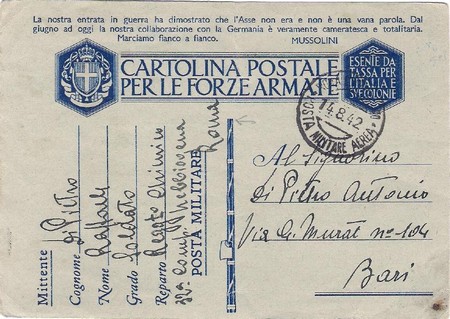 La nostra entrata in guerra ha dimostrato che l'Asse non era e non è una vana parola. Dal
giugno ad oggi la nostra collaborazione con la Germania è veramente cameratesca e totalitaria.
Marciamo fianco a fianco. MUSSOLINI
CARTOLINA POSTALE
PER LE FORZE ARMA
ESENTE DA
TASSA PER
L'ITALIA E
SVE COLONIE
14.8.42
POSTA MILITARE AEREA
Al Signorino
Di Pietro Antonio
Via G. Murat nº 104
Bari
Mittente
Cognome Di Pietro
Nome Raffaele
Grado Soldato
Reparto Chimico
POSTA MILITARE
Roma